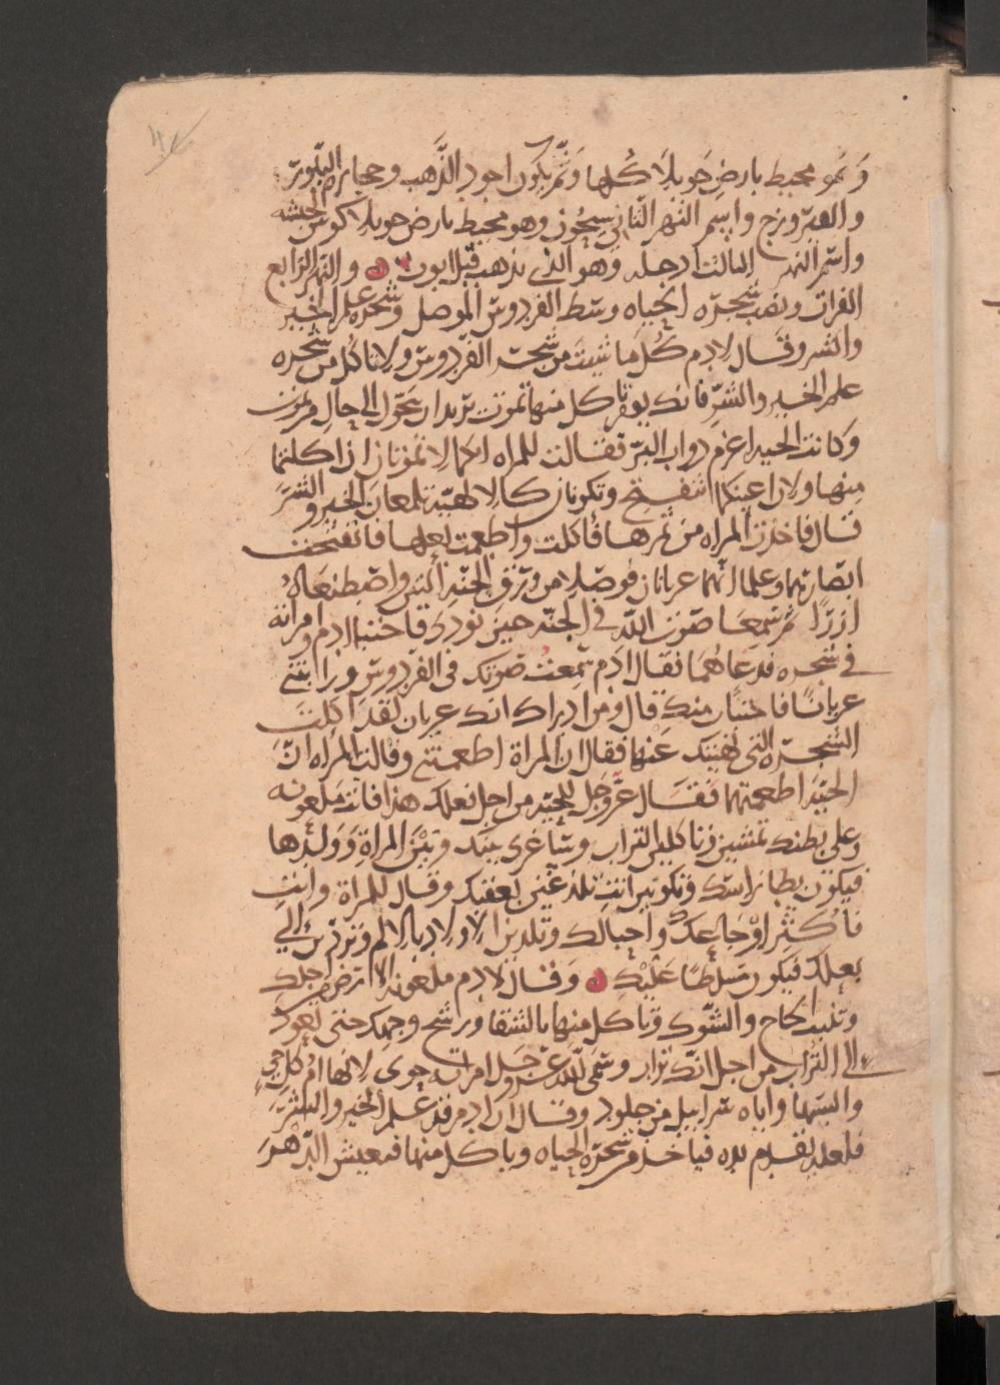 وهو محيط بارض حويلا كلها وثم يكون اجود الذهب وحجاره البلور
والفيروزج واسم النهر الثاني سيحون وهو محيط بارض حويلا كوش الحبشه
واسم النهر الثالث الدجله وهو الذي يذهب قبل اثور والنهر الرابع
الفرات ونصب شجره الحياه وسط الفردوس الموصل وشجره علم الخير
والشر وقال لادم كل ما شيت من شجر الفردوس ولا تاكل من شجره
علم الخير والشر فانك يوم تاكل منها تموت تريد ان تحول الى حال من يموت
وكانت الحيه اعزم دواب البر فقالت للمراه انكما لا تموتان ان اكلتما
منها ولان اعينكما تنفتح وتكونان كالالهيه تعلمان الخير والشر
قال فاخذت المراه من ثمرها فاكلت واطعمت بعلها فانفتحت
ابصارهما وعلما انهما عريانان فوصلا من ورق الجنه التين واصطنعا له
ازرا ثم سمعا صوت الله في الجنه حين نودي فاختبا ادم وامراته
في شجره فدعاهما فقال ادم سمعت صوتك في الفردوس ورايتني
عريانا فاختبان منك قال ومن ادراك انك عريان لقد اكلت
الشجره التي نهيتك عنها فقال ان المراة اطعمتني وقالت المراه ان
الحيه اطعمتهما فقال عز وجل للحيه من اجل فعلك هذا فانت ملعونه
وعلى بطنك تمشين وتاكلين التراب وساغري بينك وبين المراة وولدها
فيكون يطا راسك وتكونين انت تلدغين بعقبك وقال للمراة وانت
فاكثر اوجاعك واحبالك وتلدين الاولاد بالالم وتردين الي
بعلك فيكون مسلطا عليك وقال لادم ملعونه الارض من اجلك
وتنبت الحاج والشوك وتاكل منها بالشقا ورشح وجهك حتى تعود
الى التراب من اجل انك تراب وسمى الله عز وجل امراته حوى لانها ام كل حي
والبسها واياه سرابيل من جلود وقال ان ادم قد علم الخير والشر
فلعله يقدم يده فياخذ من شجره الحياه وياكل منها فيعيش الدهر